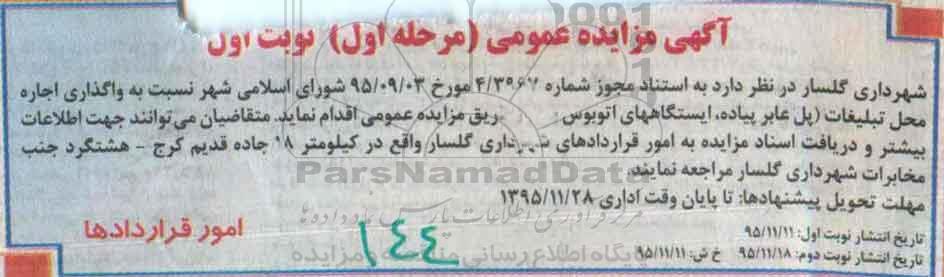 آگهی مزایده عمومی (مرحله اول) نوبت اول
شهرداری گلسار در نظر دارد به استناد مجوز شماره ۴/۳۹۶۷ مورخ ۹۵/۰۹/۰۳ شورای اسلامی شهر نسبت به واگذاری اجاره
محل تبلیغات (پل عابر پیاده، ایستگاههای اتوبوس ریق مزایده عمومی اقدام نماید. متقاضیان می‌توانند جهت اطلاعات
بیشتر و دریافت اسناد مزایده به امور قراردادهای شهرداری گلسار واقع در کیلومتر ۱۸ جاده قدیم کرج - هشتگرد جنب
مخابرات شهرداری گلسار مراجعه نمایند.
مهلت تحویل پیشنهادها: تا پایان وقت اداری ۱۳۹۵/۱۱/۲۸
تاریخ انتشار نوبت اول: ۹۵/۱۱/۱۱
تاریخ انتشار نوبت دوم: ۹۵/۱۱/۱۸ خ ش: ۹۵/۱۱/۱۱
امور قراردادها
۱۴۴
ParsNamadData
مرکز فرآوری اطلاعات پارس نماد داده ها
پایگاه اطلاع رسانی مناقصه و مزایده